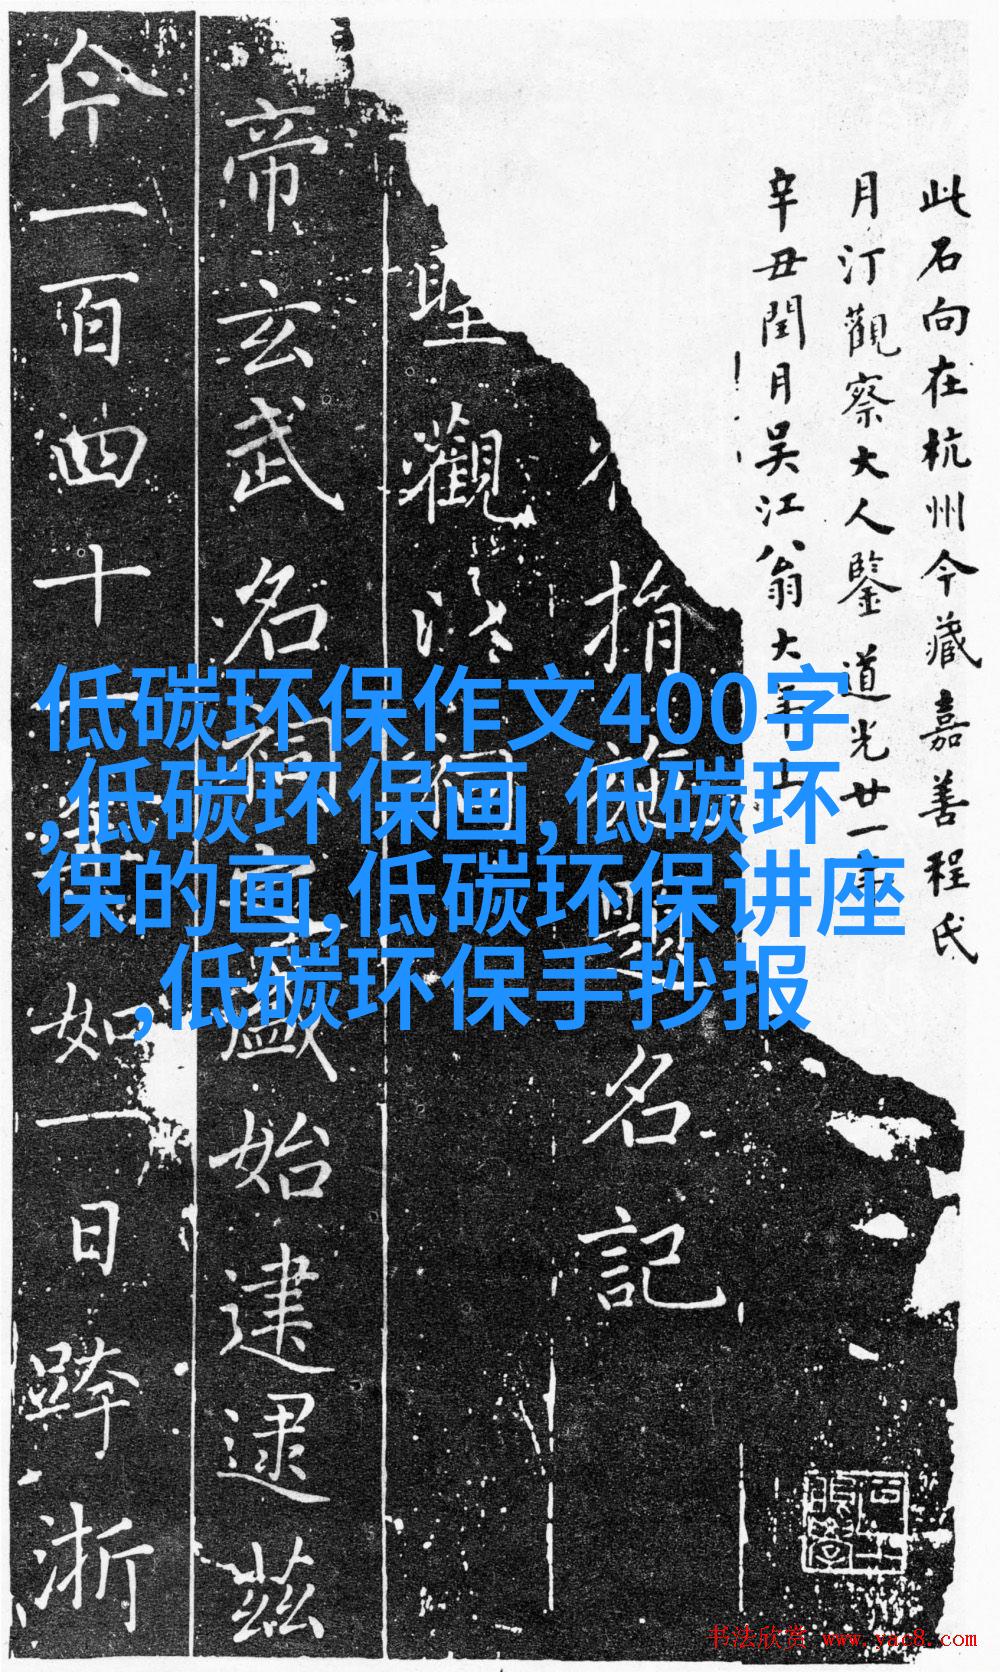 此石向在杭州今藏嘉善程氏
月汀觀察大人鑒道光廿一年
辛丑閏月吳江翁大年
指題名記
聖觀洞
帝玄武名洞始建逮茲
一百四十如一日蹕浙
低碳环保作文400字
,低碳环保画,低碳环
保的画,低碳环保讲座
,低碳环保手抄报
书法欣赏 www.yac8.com